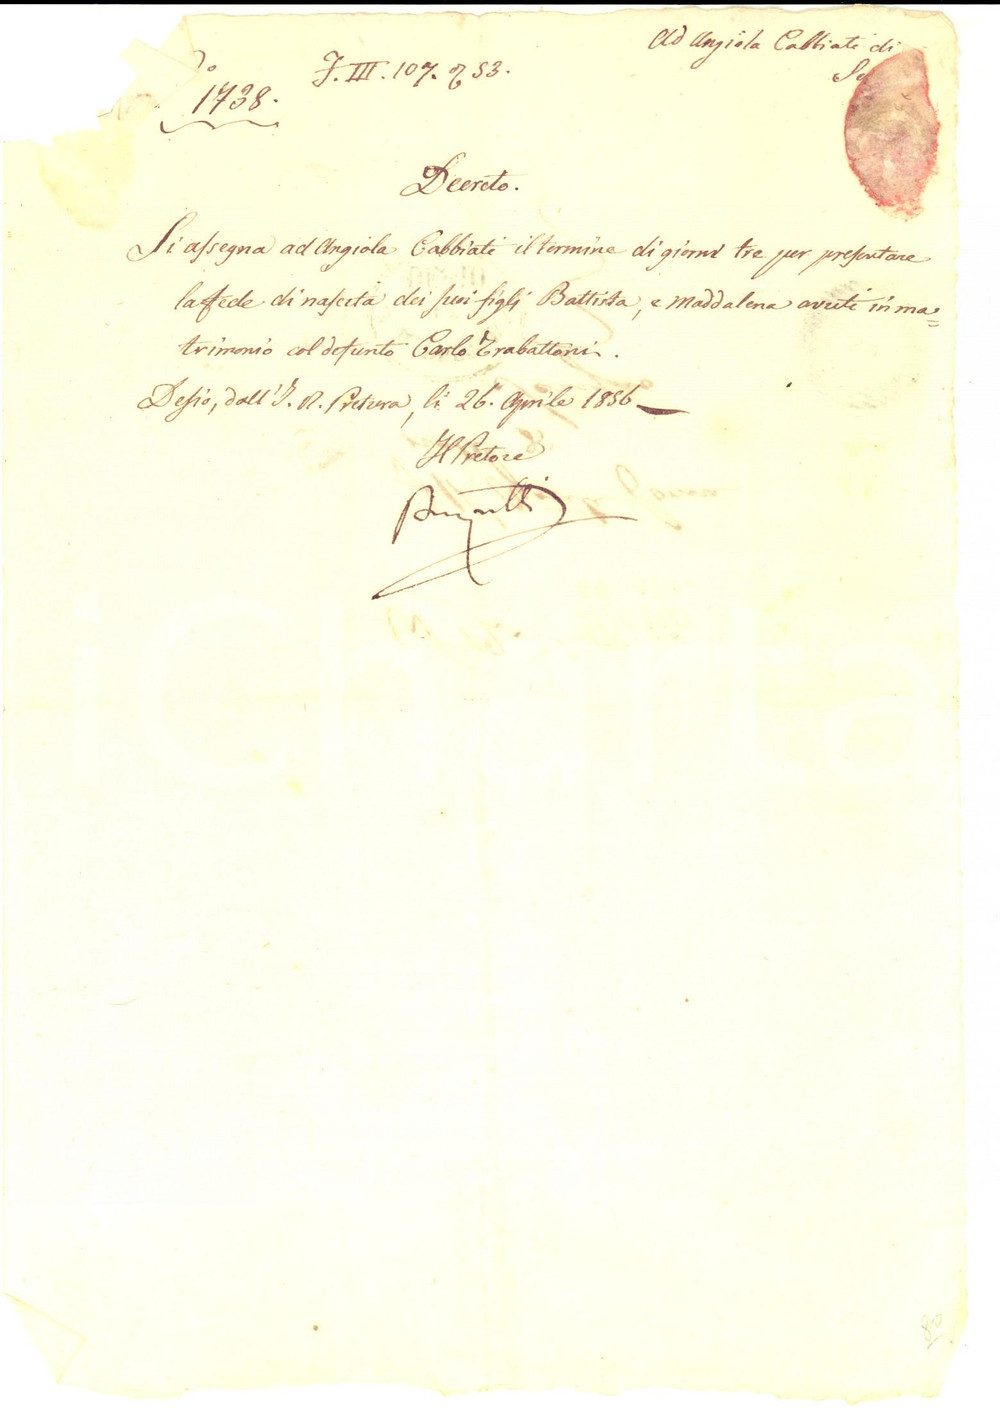 Ad Angiola Cabbiati di
Se
No
1738.
F. III. 107. 53.
Decreto.
Si assegna ad Angiola Cabbiati il termine di giorni tre per presentare
la fede di nascita dei suoi figli Battista, e Maddalena avuti in ma=
trimonio col defunto Carlo Trabattoni.
Desio, dall'I. R. Pretura, li 26. Aprile 1836
Il Pretore
iCharta